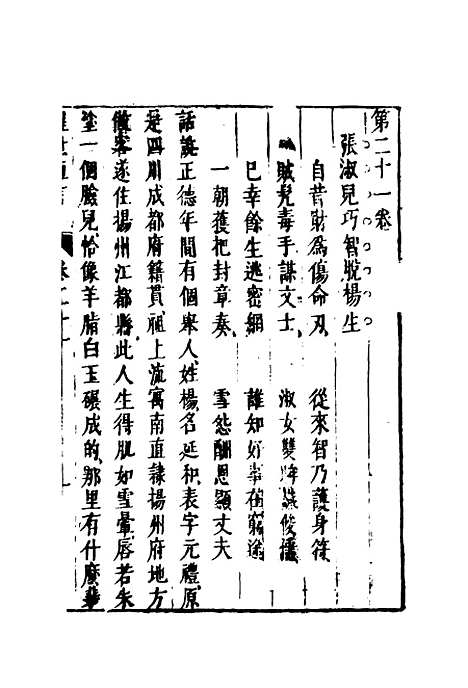 第二十一卷
張淑兒巧智脫楊生
自昔財為傷命刃　從來智乃護身符
賊髡毒手謀文士　淑女雙眸識俊儒
已幸餘生逃密網　誰知好事在窮途
一朝獲把封章奏　雪怨酬恩顯丈夫
話說正德年間有個舉人姓楊名延和表字元禮原
是四川成都府籍貫祖上流寓南直隸揚州府地方
做客遂住揚州江都縣此人生得肌如雪暈唇若朱
塗一個臉兒恰像羊脂白玉碾成的那里有什麼